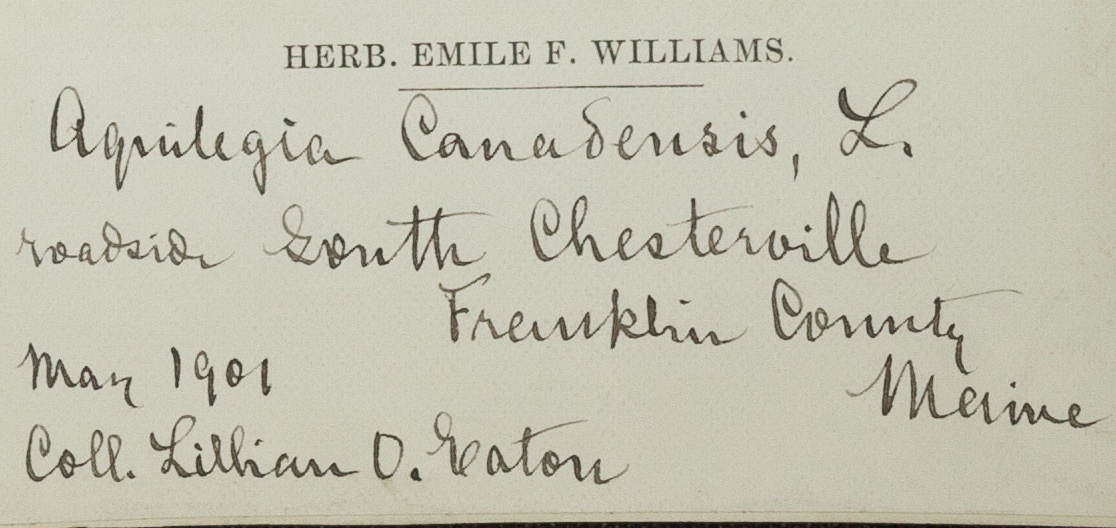 HERB. EMILE F. WILLIAMS.
Aquilegia Canadensis, L.
roadside South Chesterville
Franklin County
May 1901
Maine
Coll. Lillian O. Eaton